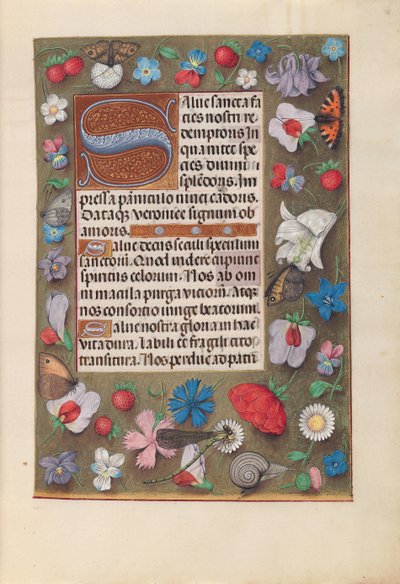 Salue sancta fa
cies nostri re
demptoris In
qua nitet spe
cies diuini
splēdoris. Im
pressa pāniculo niuei cādoris.
Dataqz veronice signum ob
amoris.
Salue decus seculi speculum
sanctorū. Quod videre cupiunt
spiritus celorum. Nos ab om
ni macula purga viciorū. Atqz
nos consortio iunge beatorum.
Salue nostra gloria in hac
vita dura. Labili et fragili cito
transitura. Nos perduc ad patri